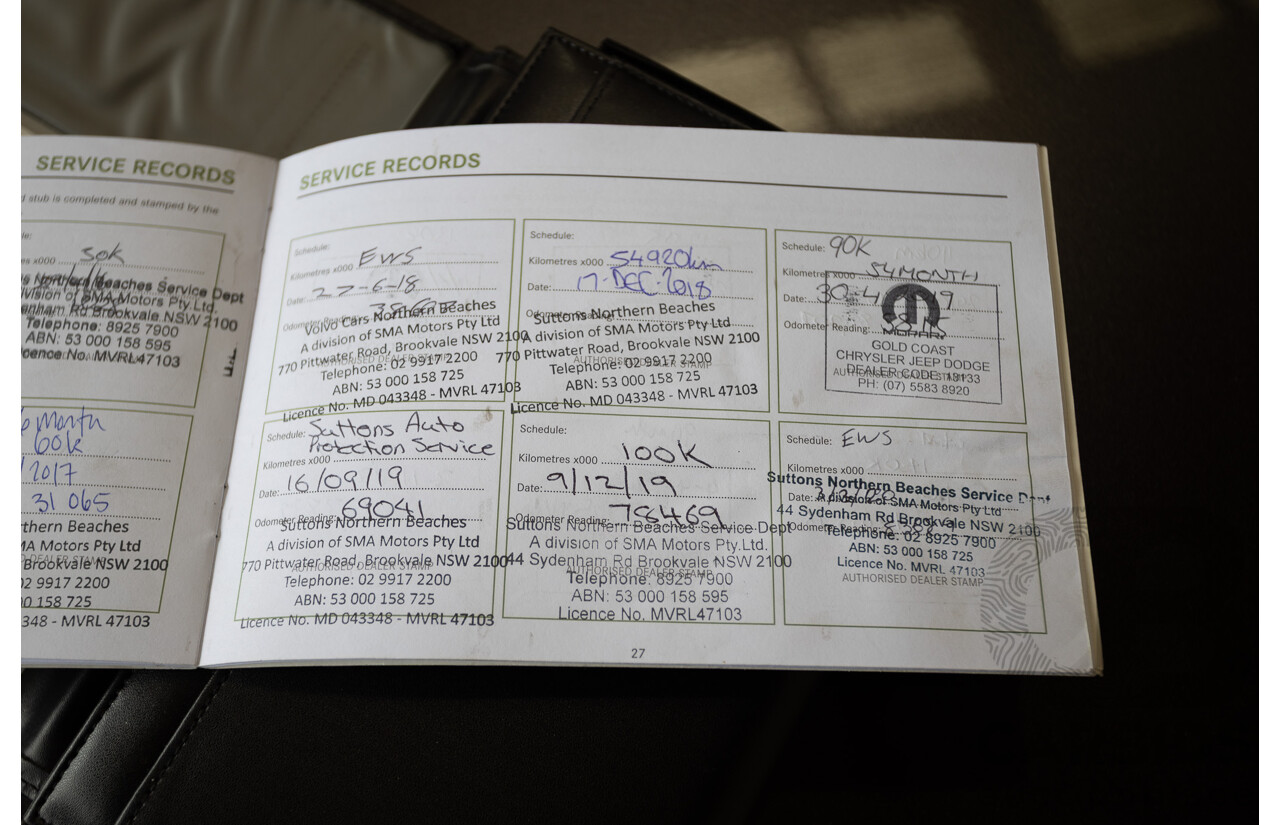 SERVICE RECORDS
stub is completed and stamped by the
50k
es x000
Northern Beaches Service Dept
ivision of SMA Motors Pty.Ltd.
enham Rd Brookvale.NSW 2100
Telephone: 8925 7900
ABN: 53 000 158 595
icence No. MVRL47103
Month
60k
/2017
31 065
thern Beaches
MA Motors Pty Ltd
Brookvale NSW 2100
02 9917 2200
0 158 725
348 - MVRL 47103
SERVICE RECORDS
Schedule:
EWS
Kilometres x000
Date: 27-6-18
Odometer Reading:
Volvo Cars Northern Beaches
A division of SMA Motors Pty Ltd
770 Pittwater Road, Brookvale NSW 2100
AUTHORISED DEALER STAMP
Telephone: 02 9917 2200
ABN: 53 000 158 725
Licence No. MD 043348 - MVRL 47103
Schedule:
Kilometres x000 54920km
Date: 17-DEC-2018
Suttons Northern Beaches
A division of SMA Motors Pty Ltd
770 Pittwater Road, Brookvale NSW 2100
AUTHORISED DEALER STAMP
Telephone: 02 9917 2200
ABN: 53 000 158 725
Licence No. MD 043348 - MVRL 47103
Schedule: 90K
Kilometres x000 54 MONTH
Date: 30-4
Odometer Reading:
MOPAR
GOLD COAST
CHRYSLER JEEP DODGE
DEALER CODE
AUTHORISED DEALER STAMP
PH: (07) 5583 8920
Schedule: Suttons Auto
Protection Service
Kilometres x000
Date: 16/09/19
Odometer Reading: 69041
Suttons Northern Beaches
A division of SMA Motors Pty Ltd
770 Pittwater Road, Brookvale NSW 2100
AUTHORISED DEALER STAMP
Telephone: 02 9917 2200
ABN: 53 000 158 725
Licence No. MD 043348 - MVRL 47103
Schedule:
Kilometres x000 100K
Date: 9/12/19
Odometer Reading: 78469
Suttons Northern Beaches Service Dept
A division of SMA Motors Pty.Ltd.
44 Sydenham Rd Brookvale NSW 2100
AUTHORISED DEALER STAMP
Telephone: 8925 7900
ABN: 53 000 158 595
Licence No. MVRL47103
Schedule: EWS
Kilometres x000
Date:
Suttons Northern Beaches Service Dept
A division of SMA Motors Pty Ltd
44 Sydenham Rd Brookvale NSW 2100
Odometer Reading:
Telephone: 02 8925 7900
ABN: 53 000 158 725
Licence No. MVRL 47103
AUTHORISED DEALER STAMP
27